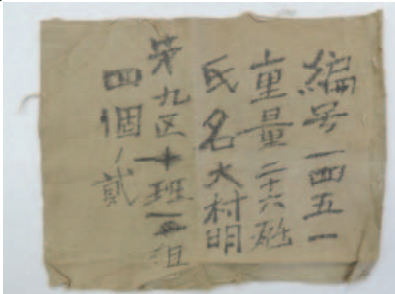 編号一四五一
重量二十六
氏名大村明
第九区十班一組
四個ノ貳